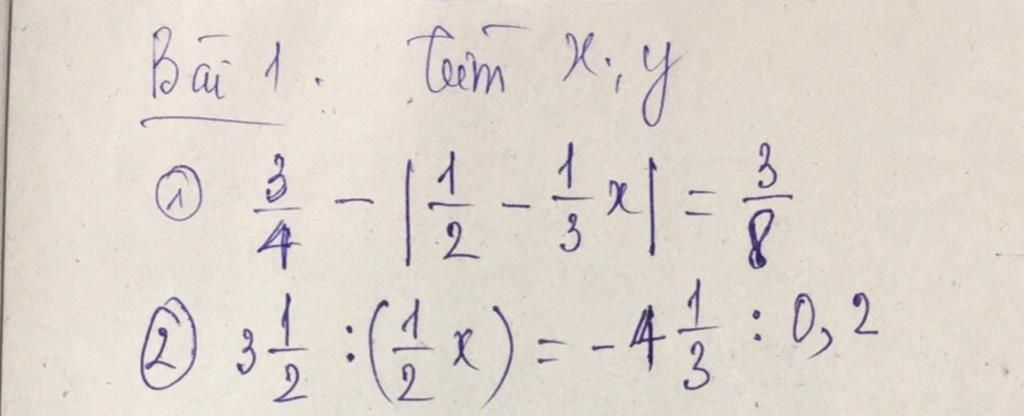 Bài 1. Tìm x; y
① 3/4 - |1/2 - 1/3 x| = 3/8
② 3 1/2 : (1/2 x) = -4 1/3 : 0,2